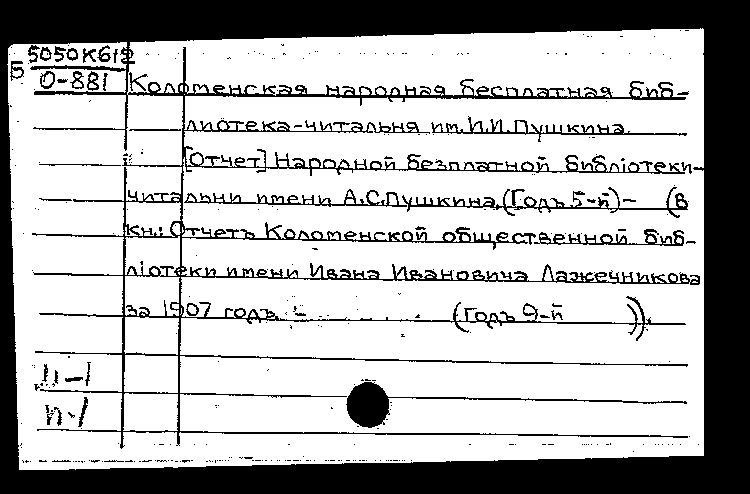 5050К612
Б О-881 Коломенская народная бесплатная биб-
лиотека-читальня им. И.И. Пушкина.
[Отчет] Народной безплатной библіотеки-
читальни имени А.С.Пушкина. (Годъ 5-й)- (В
кн.: Отчетъ Коломенской общественной биб-
ліотеки имени Ивана Ивановича Лажечникова
за 1907 годъ. - (Годъ 9-й )).
п-1